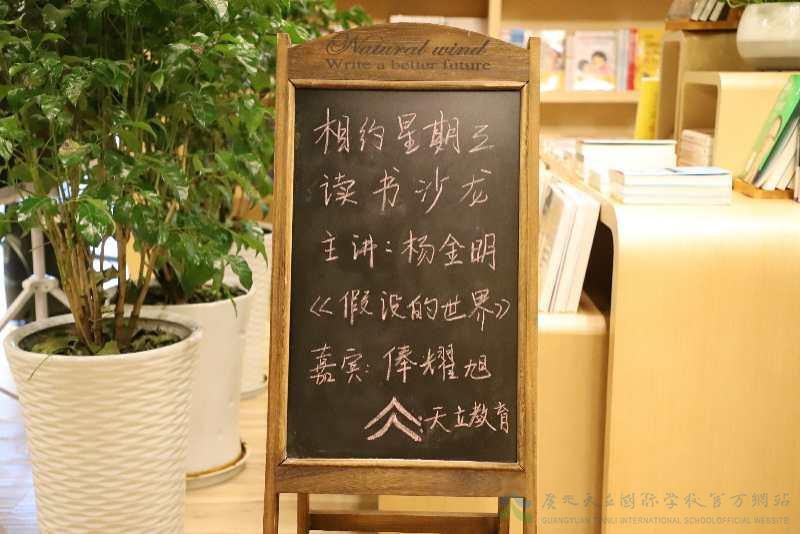 Natural wind
Write a better future
相约星期三
读书沙龙
主讲:杨金明
《假设的世界》
嘉宾:俸耀旭
天立教育
广元天立国际学校官方網站
GUANGYUAN TIANLI INTERNATIONAL SCHOOLOFFICIAL WEBSITE